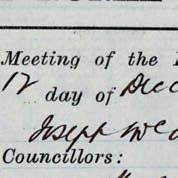 Meeting of the
12 day of Dec
Joseph Mc
Councillors: